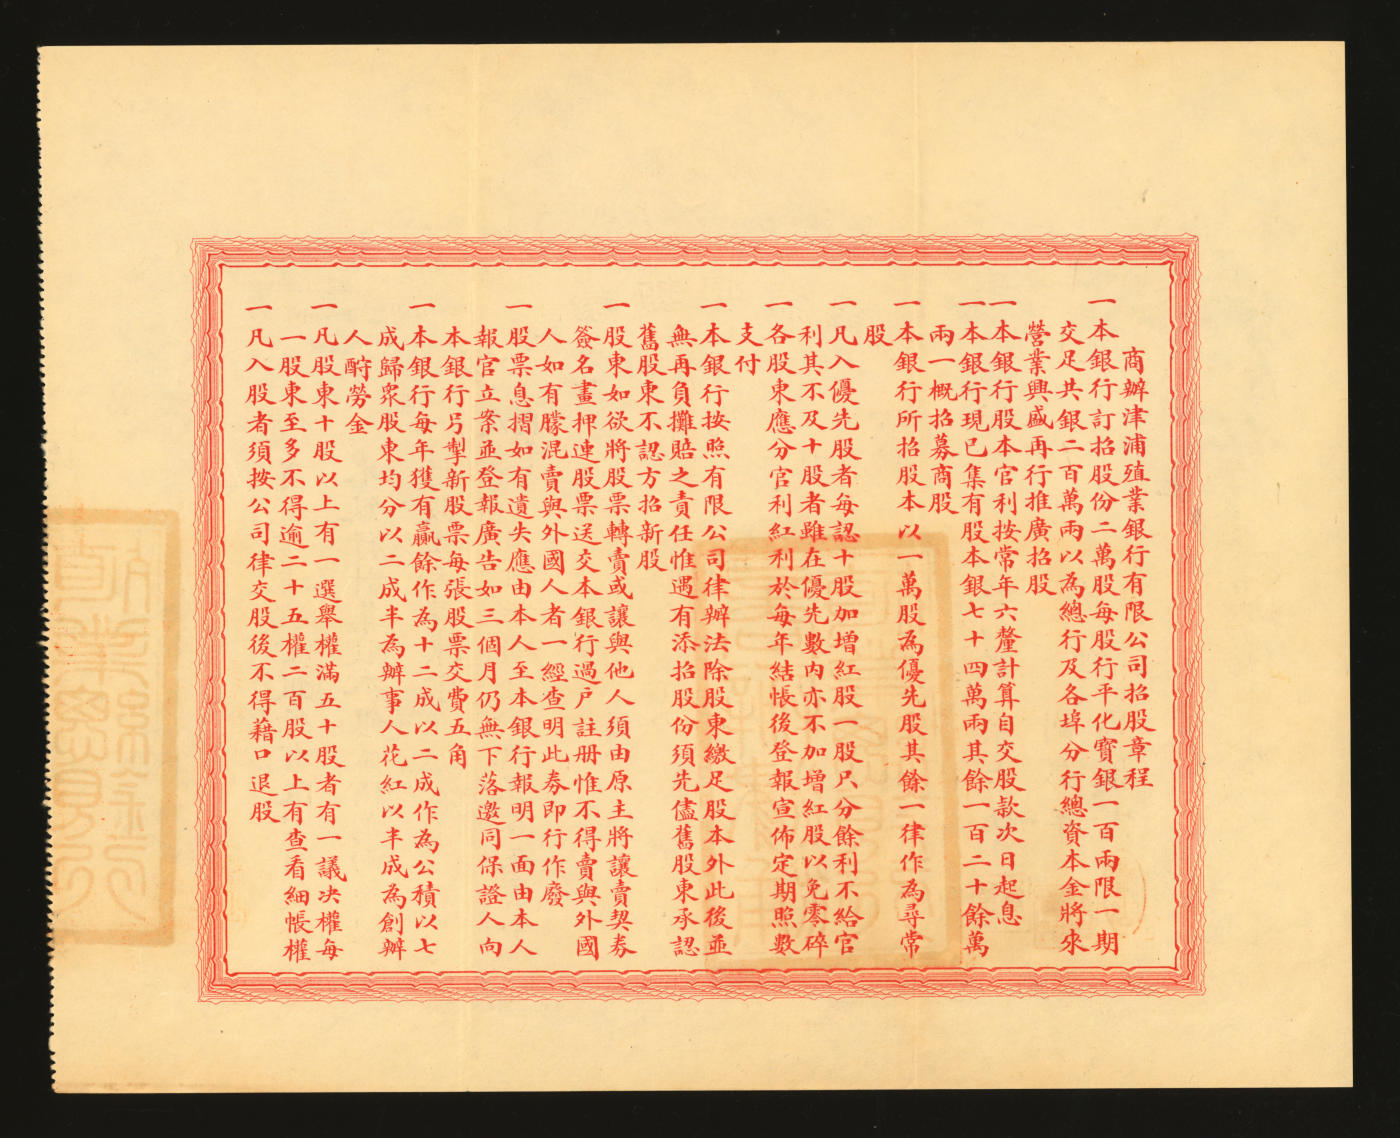 商辦津浦殖業銀行有限公司招股章程
一本銀行訂招股份二萬股每股行平化寶銀一百兩限一期
交足共銀二百萬兩以為總行及各埠分行總資本金將來
營業興盛再行推廣招股
一本銀行股本官利按常年六釐計算自交股款次日起息
一本銀行現已集有股本銀七十四萬兩其餘一百二十餘萬
兩一概招募商股
一本銀行所招股本以一萬股為優先股其餘一律作為尋常
股
一凡入優先股者每認十股加增紅股一股尺分餘利不給官
利其不及十股者雖在優先數內亦不加增紅股以免零碎
一各股東應分官利紅利於每年結帳後登報宣佈定期照數
支付
一本銀行按照有限公司律辦法除股東繳足股本外此後並
無再負攤賠之責任惟遇有添招股份須先儘舊股東承認
舊股東不認方招新股
一股東如欲將股票轉賣或讓與他人須由原主將讓賣契券
簽名畫押連股票送交本銀行過戶註册惟不得賣與外國
人如有朦混賣與外國人者一經查明此券即行作廢
一股票息摺如有遺失應由本人至本銀行報明一面由本人
報官立案並登報廣告如三個月仍無下落邀同保證人向
本銀行另掣新股票每張股票交費五角
一本銀行每年獲有贏餘作為十二成以二成作為公積以七
成歸眾股東均分以二成半為辦事人花紅以半成為創辦
人酧勞金
一凡股東十股以上有一選舉權滿五十股者有一議决權每
一股東至多不得逾二十五權二百股以上有查看細帳權
一凡入股者須按公司律交股後不得藉口退股